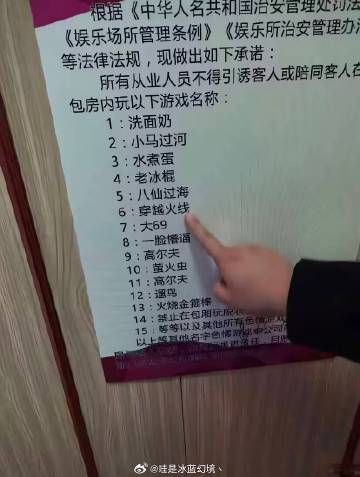 根据《中华人名共和国治安管理处罚法
《娱乐场所管理条例》《娱乐所治安管理办
等法律法规,现做出如下承诺:
所有从业人员不得引诱客人或陪同客人在
包房内玩以下游戏名称:
1:洗面奶
2:小马过河
3:水煮蛋
4:老冰棍
5:八仙过海
6:穿越火线
7:大69
8:一脸懵逼
9:高尔夫
10:萤火虫
11:高尔夫
12:遛鸟
13:火烧金箍棒
14:禁止在包厢玩脱衣
15:等等以及其他所有色情游戏
以上等其他名字色情游戏
@哇是冰蓝幻境丶